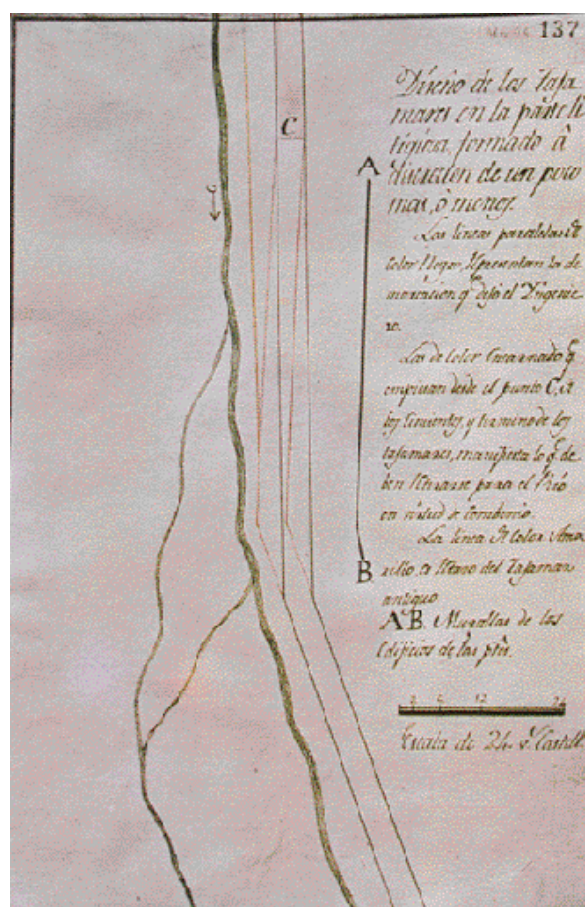 137
Diseño de los Taja-
mares en la parte li
tigiosa, formado â
direcion de un poco
mas, ô menos.
Las lineas paralelas de
color Negro, representan la de
marcacion q. dejó el Yngenie
ro.
Las de color Encarnado q.
empiezan desde el punto C, a
los cimientos, y termino de los
tajamares, manifiesta lo q. de
ben retirarse para el Rio
en virtud de combenio.
La linea de color Ama
rillo, el retazo del Tajamar
antiguo
A B. Murallas de los
Edificios de las ptes.
C
A
B
6 12 24
Escala de 24 vs. Castell